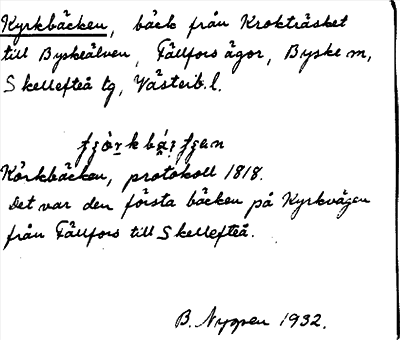 Kyrkbäcken, bäck från Krokträsket
till Byskeälven, Fällfors ägor, Byske sn,
Skellefteå tg, Västerb. l.
Körkbäcken, protokoll 1818.
Det var den första bäcken på Kyrkvägen
från Fällfors till Skellefteå.
B. Nygren 1932.